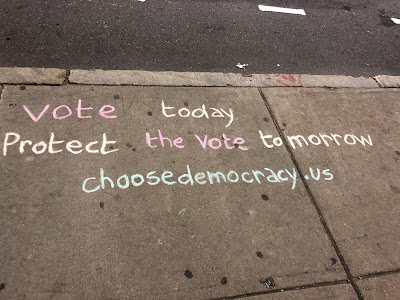 Vote today
Protect the Vote tomorrow
choosedemocracy.us